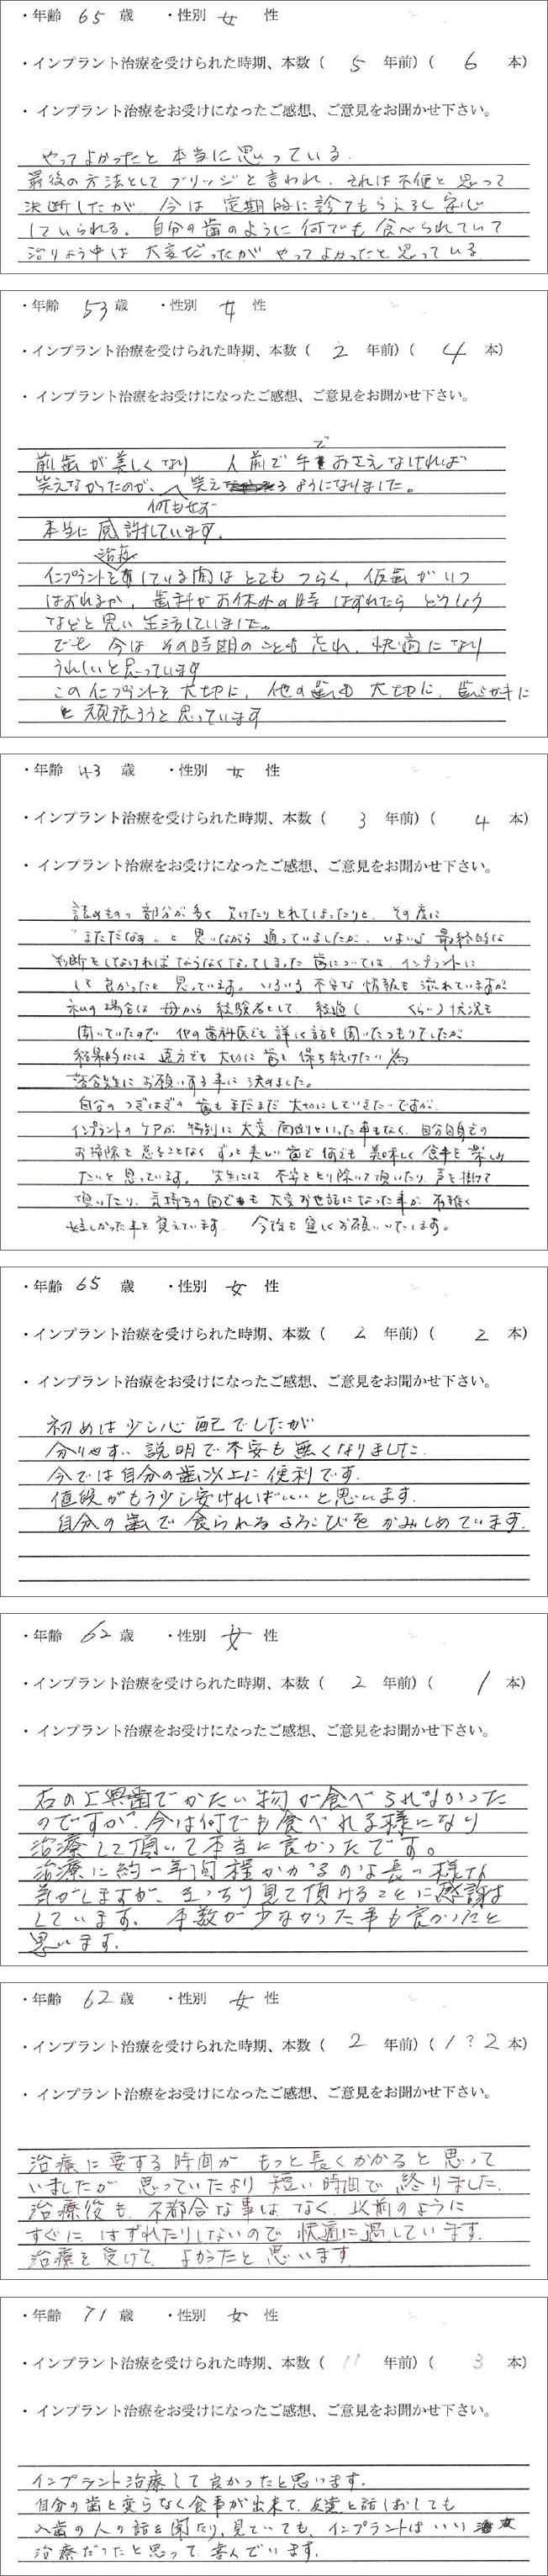 ・年齢 65 歳 ・性別 女 性
・インプラント治療を受けられた時期、本数 ( 5 年前) ( 6 本)
・ インプラント治療をお受けになったご感想、ご意見をお聞かせ下さい。
やってよかったと 本当に思っている.
最後の方法として ブリッジと言われ、それは不便と思って
決断したが、今は 定期的に診てもらえるし 安心
していられる。 自分の歯のように何でも食べられていて
治りょう中は 大変だったが やってよかったと思っている
・年齢 53 歳 ・性別 女 性
・インプラント治療を受けられた時期、本数 ( 2 年前) ( 4 本)
・ インプラント治療をお受けになったご感想、ご意見をお聞かせ下さい。
前歯が美しくなり 人前で手でおさえなければ
笑えなかったのが、何もせず笑えるようになりました。
本当に感謝しています.
インプラント治療をしている間はとてもつらく、仮歯がいつ
はずれるか、歯科がお休みの時 はずれたら どうしよう
などと思い生活していました。
でも 今は その時期のことも忘れ、快適になり
うれしいと思っています
このインプラントを大切に、他の歯も 大切に、歯みがきに
頑張ろうと思っています
・年齢 43 歳 ・性別 女 性
・インプラント治療を受けられた時期、本数 ( 3 年前) ( 4 本)
・ インプラント治療をお受けになったご感想、ご意見をお聞かせ下さい。
詰めものの部分が多く 欠けたりとれてしまったりと、その度に
"まただなぁ" と思いながら 通っていましたが、いよいよ最終的な
判断をしなければならなくなってしまった歯については、インプラントに
して良かったと思っています。いろいろ不安な情報も流れていますが
私の場合は 母から 経験者として、経過( くらい)状況も
聞いていたので 他の歯科医でも詳しく話を聞いたつもりでしたが、
結果的には 遠方でも大切に歯を保ち続けたい為
落合先生にお願いする事に決めました。
自分のつぎはぎの歯もまだまだ大切にしていきたいですが、
インプラントのケアが特別に大変・面倒といった事もなく、自分自身での
お掃除を怠ることなく ずっと美しい歯で何でも美味しく食事を楽しみ
たいと思っています。 先生には 不安をとり除いて頂いたり、声を掛けて
頂いたり、気持ちの面でも大変お世話になった事が 有難く
嬉しかった事を覚えています。 今後も宜しくお願いいたします。
・年齢 65 歳 ・性別 女 性
・インプラント治療を受けられた時期、本数 ( 2 年前) ( 2 本)
・ インプラント治療をお受けになったご感想、ご意見をお聞かせ下さい。
初めは少し心配でしたが
分りやすい説明で不安も無くなりました.
今では自分の歯以上に便利です.
値段がもう少し安ければいいと思います.
自分の歯で食られるよろこびをかみしめています.
・年齢 62 歳 ・性別 女 性
・インプラント治療を受けられた時期、本数 ( 2 年前) ( 1 本)
・ インプラント治療をお受けになったご感想、ご意見をお聞かせ下さい。
右の上奥歯でかたい物が食べられなかった
のですが、今は何でも食べれる様になり
治療して頂いて本当に良かったです。
治療に約一年間程かかるのは長い様な
気がしますが、きっちり見て頂けることに感謝は
しています. 本数が少なかった事も良かったと
思います.
・年齢 62 歳 ・性別 女 性
・インプラント治療を受けられた時期、本数 ( 2 年前) ( 1?2 本)
・ インプラント治療をお受けになったご感想、ご意見をお聞かせ下さい。
治療に要する時間が もっと長くかかると思って
いましたが 思っていたより 短い時間で 終りました.
治療後も、不都合な事は なく、以前のように
すぐに はずれたりしないので 快適に過しています.
治療を受けて よかったと思います
・年齢 71 歳 ・性別 女 性
・インプラント治療を受けられた時期、本数 ( 11 年前) ( 3 本)
・ インプラント治療をお受けになったご感想、ご意見をお聞かせ下さい。
インプラント治療して良かったと思います.
自分の歯と変らなく食事が出来て、友達と話しおしても
入歯の人の話を聞たり、見ていても、インプラントはいい
治療だったと思って、喜んでいます.